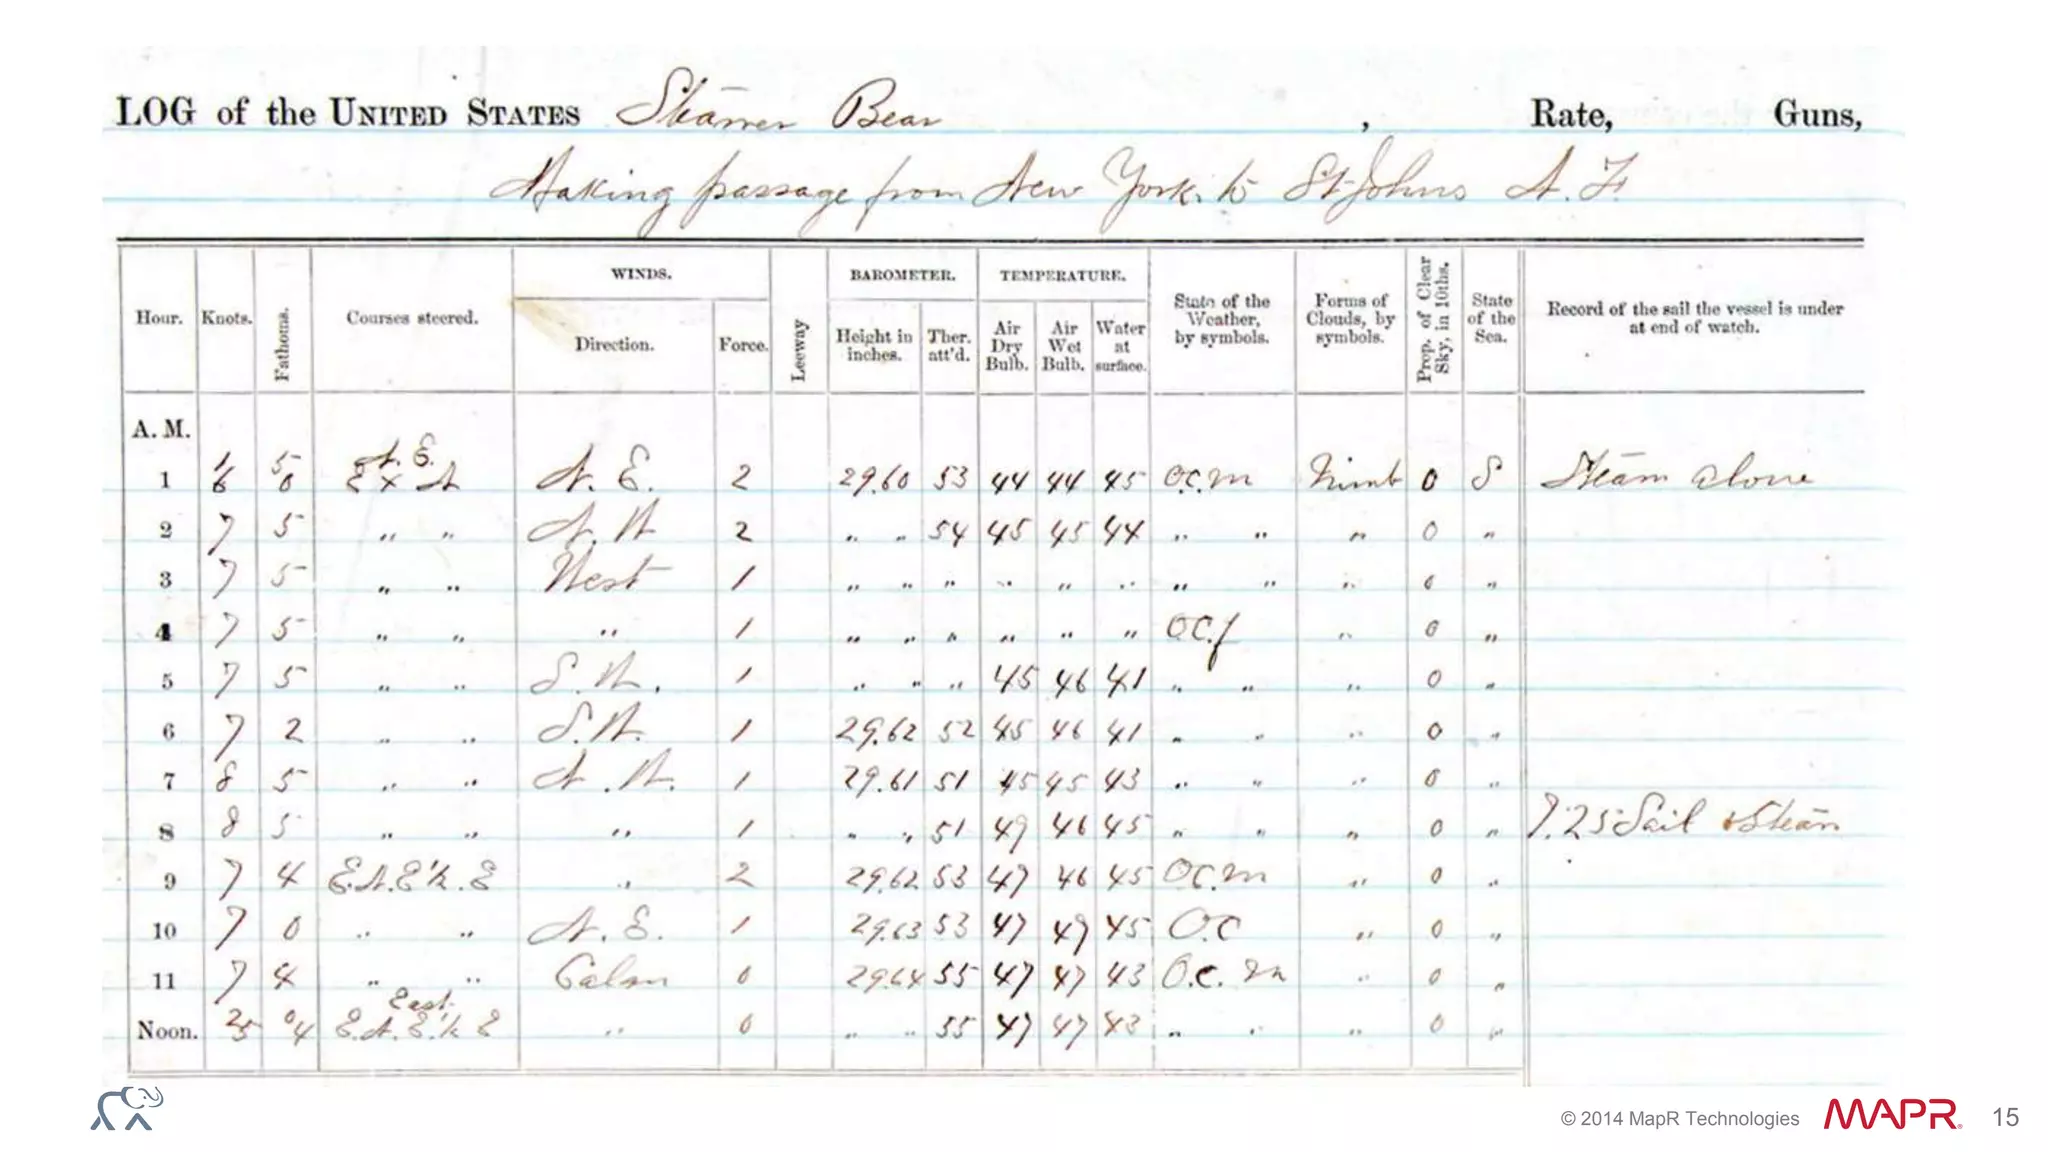 LOG of the UNITED STATES Steamer Bear , Rate, Guns,
Making passage from New York to St Johns N. F.
Hour. Knots. Fathoms. Courses steered. WINDS. Direction. Force. Leeway BAROMETER. Height in inches. Ther. att'd. TEMPERATURE. Air Dry Bulb. Air Wet Bulb. Water at surface. State of the Weather, by symbols. Forms of Clouds, by symbols. Prop. of Clear Sky, in 10ths. State of the Sea. Record of the sail the vessel is under at end of watch.
A. M.
N. E.
1 1 6 5 0 E x N N. E. 2 29.60 53 44 44 45 O.C.m Nimb 0 S Steam alone
2 7 5 " " N. W 2 " " 54 45 45 44 " " " 0 "
3 7 5 " " West 1 " " " " " " " " " 0 "
4 7 5 " " " 1 " " " " " " O.C.f " 0 "
5 7 5 " " S. W. 1 " " " 45 46 41 " " " 0 "
6 7 2 " " S. W. 1 29.62 52 45 46 41 " " " 0 "
7 8 5 " " N. W. 1 29.61 51 45 45 43 " " " 0 "
8 8 5 " " " 1 " " 51 49 46 45 " " " 0 " 7.25 Sail & Steam
9 7 4 E.N.E ½ E " 2 29.62 53 47 46 45 O.C.m " 0 "
10 7 0 " " N. E. 1 29.63 53 47 47 45 O.C " 0 "
11 7 4 " " Calm 0 29.64 55 47 47 43 O.C. m " 0 "
East
Noon. 2 5 0 4 E.N.E. ½ E " 0 " " 55 47 47 43 " " " 0 "
© 2014 MapR Technologies MAPR® 15